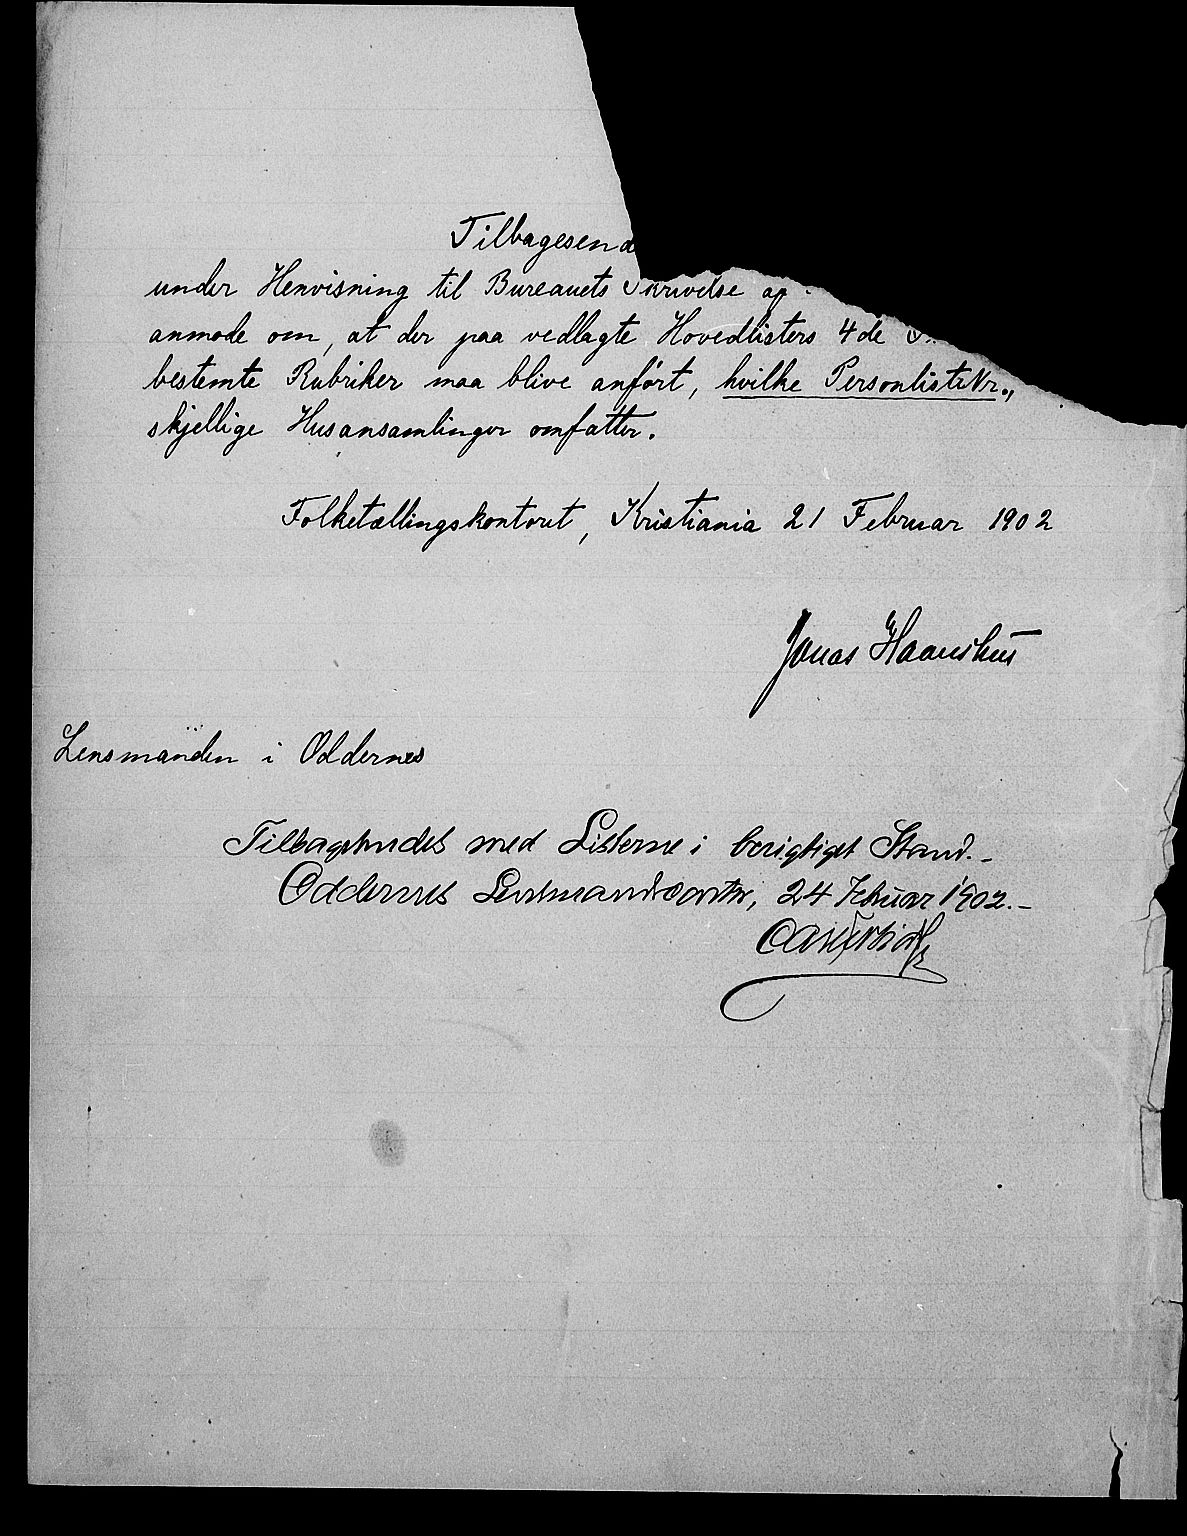 Tilbagesend
under Henvisning til Bureauets Skrivelse af
anmode om, at der paa vedlagte Hovedlisters 4de
bestemte Rubriker maa blive anført, hvilke PersonlisteNr.,
skjellige Husansamlinger omfatter.
Folketællingskontoret, Kristiania 21 Februar 1902
Jonas Haanshus
Lensmanden i Oddernes
Tilbagesendes med Listerne i berigtiget Stand.-
Oddernes Lensmandscontor, 24 Februar 1902.-